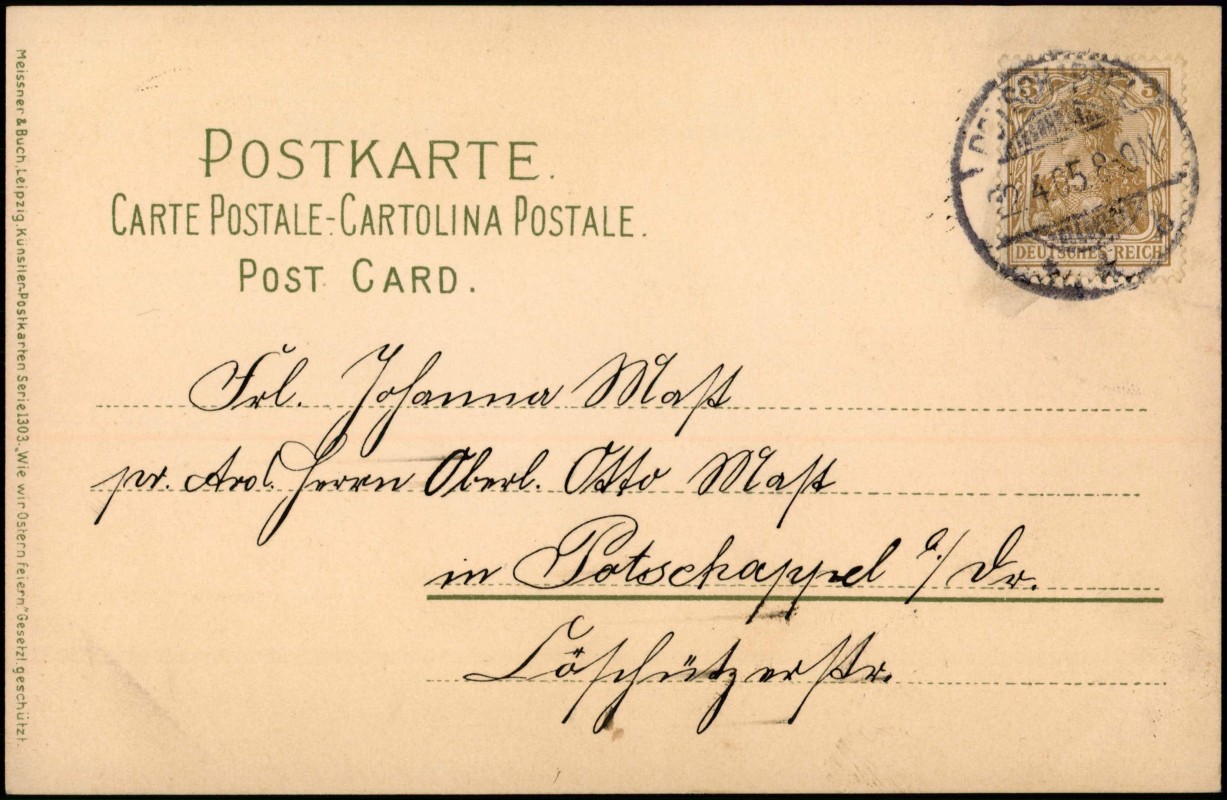 POSTKARTE.
CARTE POSTALE-CARTOLINA POSTALE.
POST CARD.
3 3
DEUTSCHES REICH
POTSCHAPPEL
23.4.05.8-9N.
b
Frl. Johanna Mast
pr. Adr. Herrn Oberl. Otto Mast
in Potschappel b./Dr.
Cöschützerstr.
Meissner & Buch, Leipzig, Künstler-Postkarten Serie 1303. „Wie wir Ostern feiern" Gesetzl. geschützt.